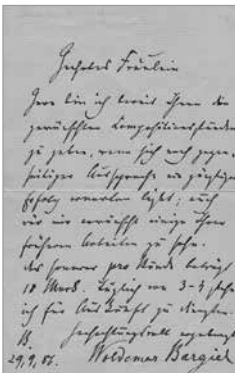 Geehrtes Fräulein
Gern bin ich bereit Ihnen die
gewünschten Compositionsstunden
zu geben, wenn sich nach gegen-
seitiger Aussprache ein günstiger
Erfolg erwarten läßt; auch
wär mir erwünscht einige Ihrer
früheren Arbeiten zu sehn.
Das Honorar pro Stunde beträgt
10 Mark. Täglich von 3-4 stehe
ich für Auskunft zu Diensten.
B. Hochachtungsvoll ergebenst
29,9,86. Woldemar Bargiel